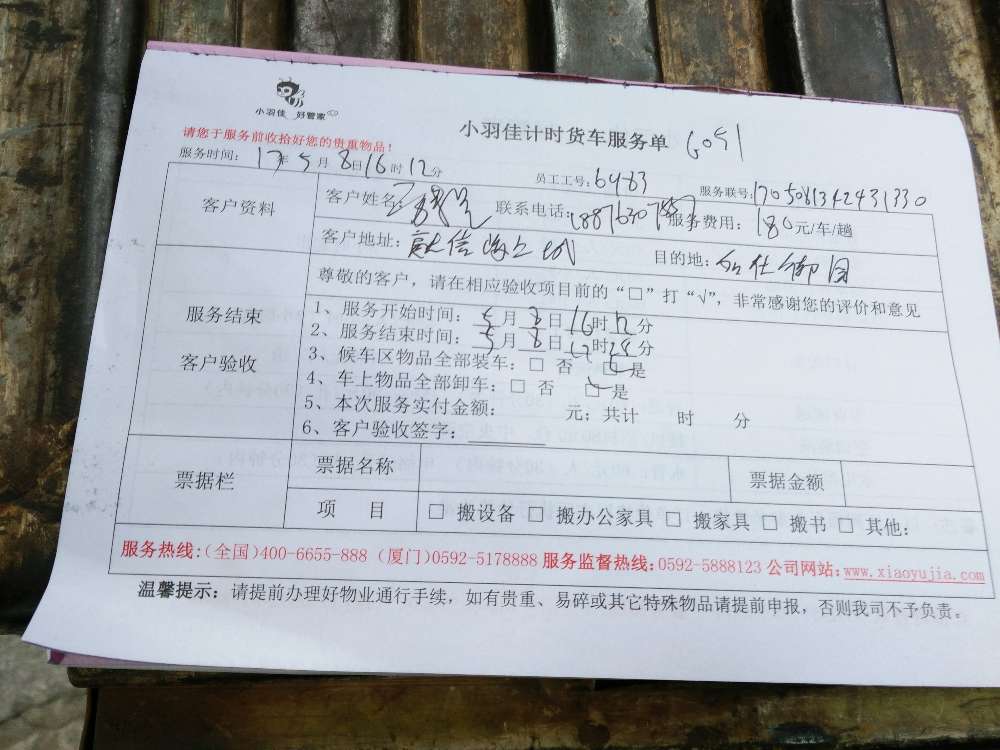 小羽佳 好管家
小羽佳计时货车服务单
请您于服务前收拾好您的贵重物品!
服务时间: 17年5月8日16时12分 员工工号: 6483 服务联号: 170508134243 1330
客户资料 客户姓名: 联系电话: 服务费用: 180元/车/趟
客户地址: 融信海上城 目的地:
尊敬的客户，请在相应验收项目前的“□”打“√”，非常感谢您的评价和意见
服务结束
客户验收
1、服务开始时间: 5月8日16时12分
2、服务结束时间: 5月8日17时25分
3、候车区物品全部装车: □ 否 □ 是
4、车上物品全部卸车: □ 否 □ 是
5、本次服务实付金额: 元; 共计 时 分
6、客户验收签字:
票据栏 票据名称 票据金额
项 目 □ 搬设备 □ 搬办公家具 □ 搬家具 □ 搬书 □ 其他:
服务热线:(全国)400-6655-888 (厦门)0592-5178888 服务监督热线:0592-5888123 公司网站:www.xiaoyujia.com
温馨提示: 请提前办理好物业通行手续，如有贵重、易碎或其它特殊物品请提前申报，否则我司不予负责。